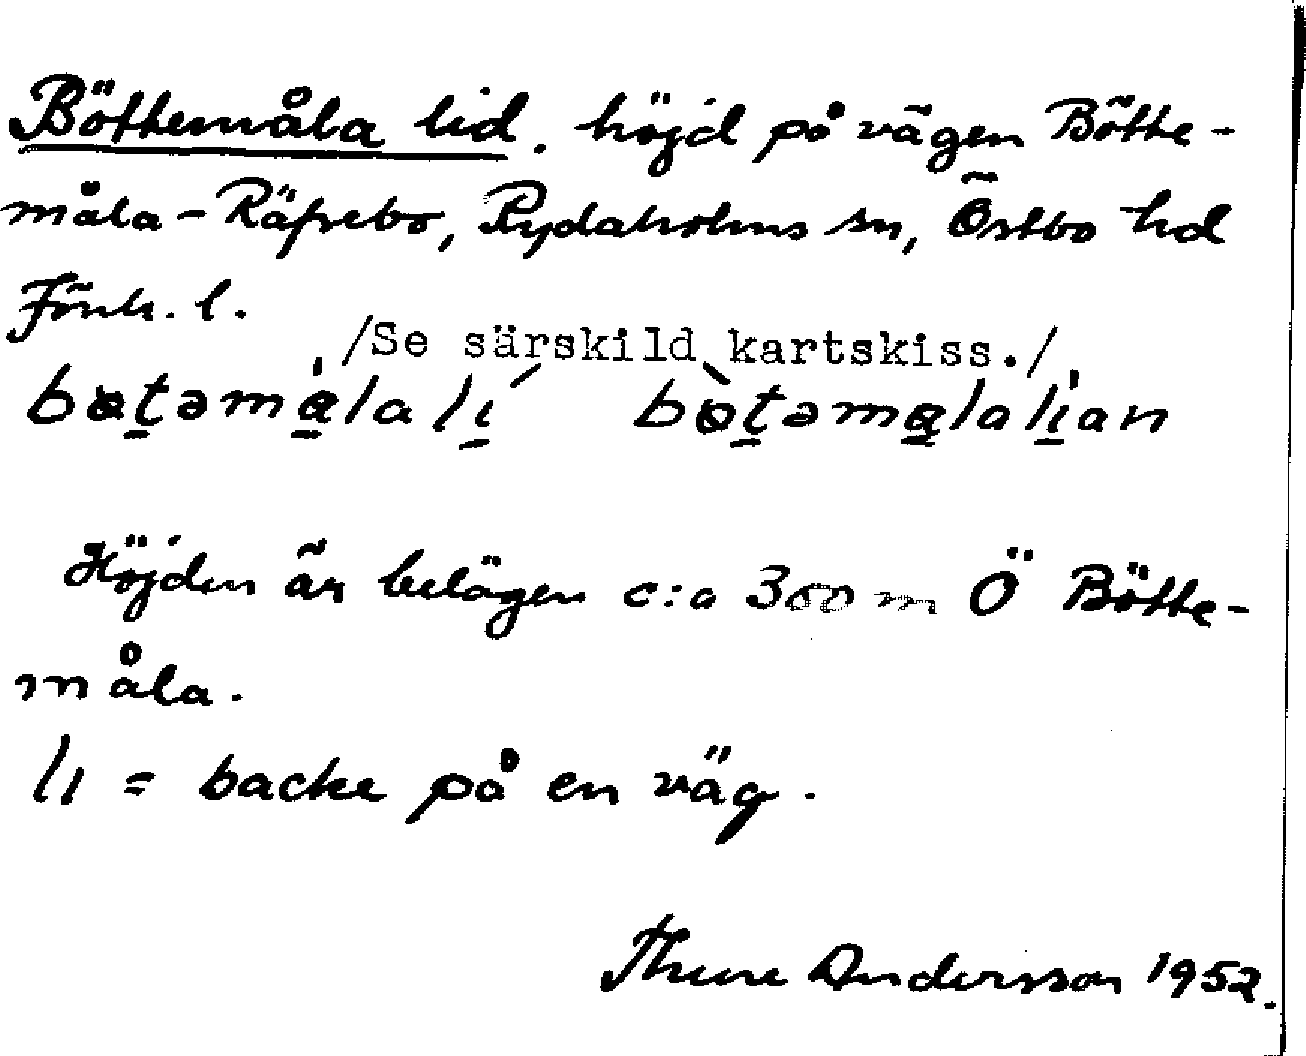 Böttemåla lid. höjd på vägen Bötte-
måla - Räfsebo, Rydaholms sn, Östbo hd
Jönk. l.
/Se särskild kartskiss./
bɵt̠əmɑ̠̍la lı̠́ bɵ̀t̠əmɑ̠lalı̠̍an
Höjden är belägen c:a 300 m Ö Bötte-
måla.
lı = backe på en väg.
Thure Andersson 1952.